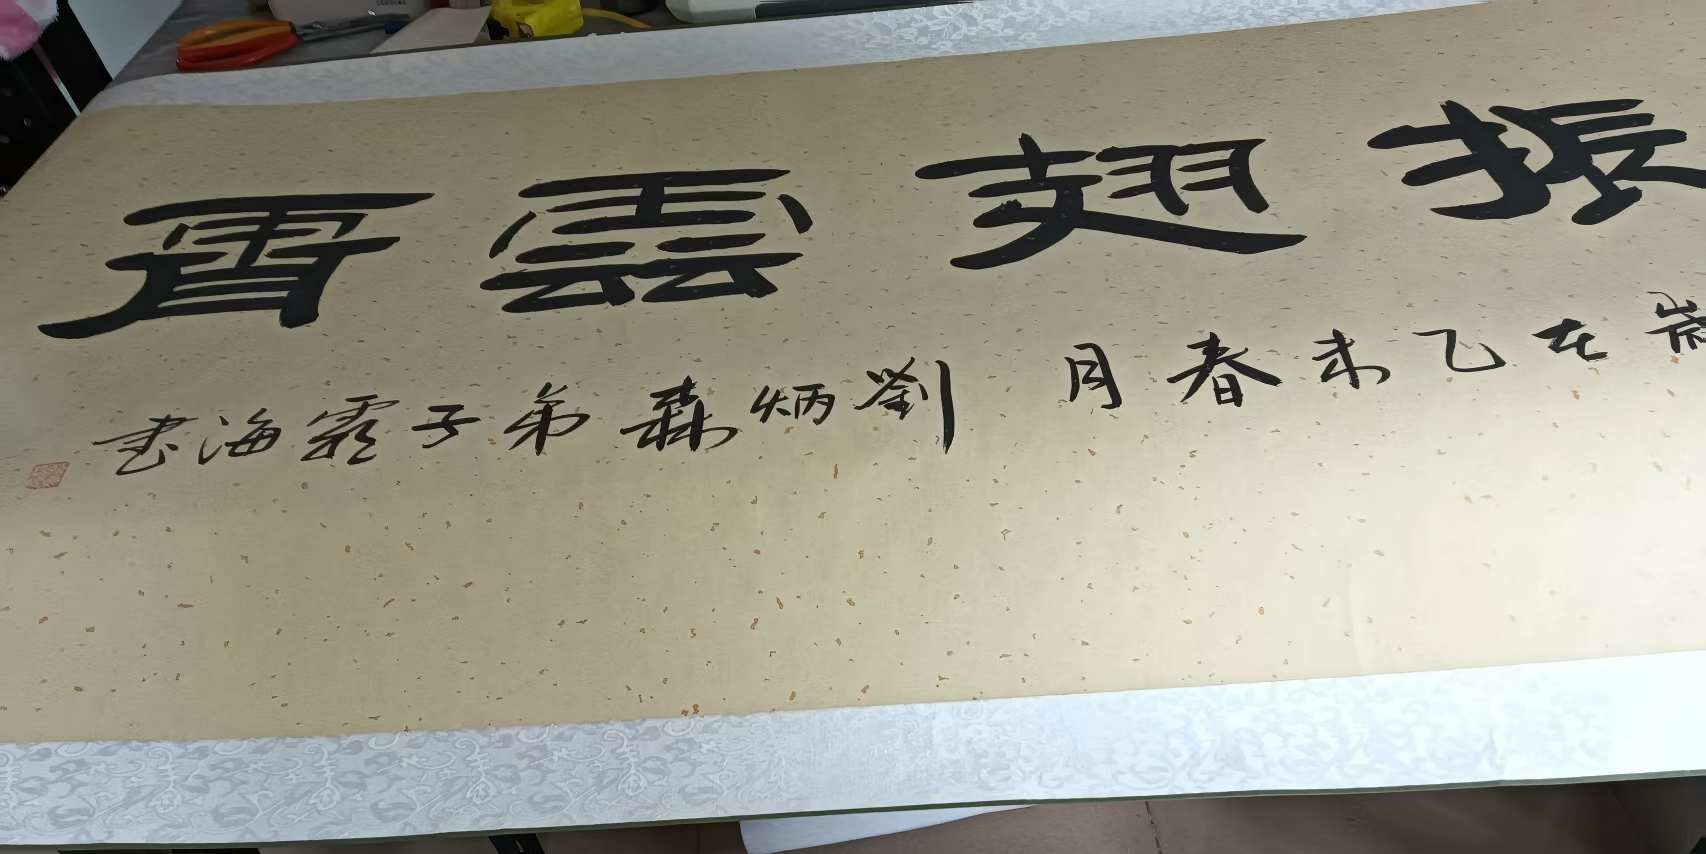 振翅雲霄
歲在乙未春月 劉炳森弟子霸海書